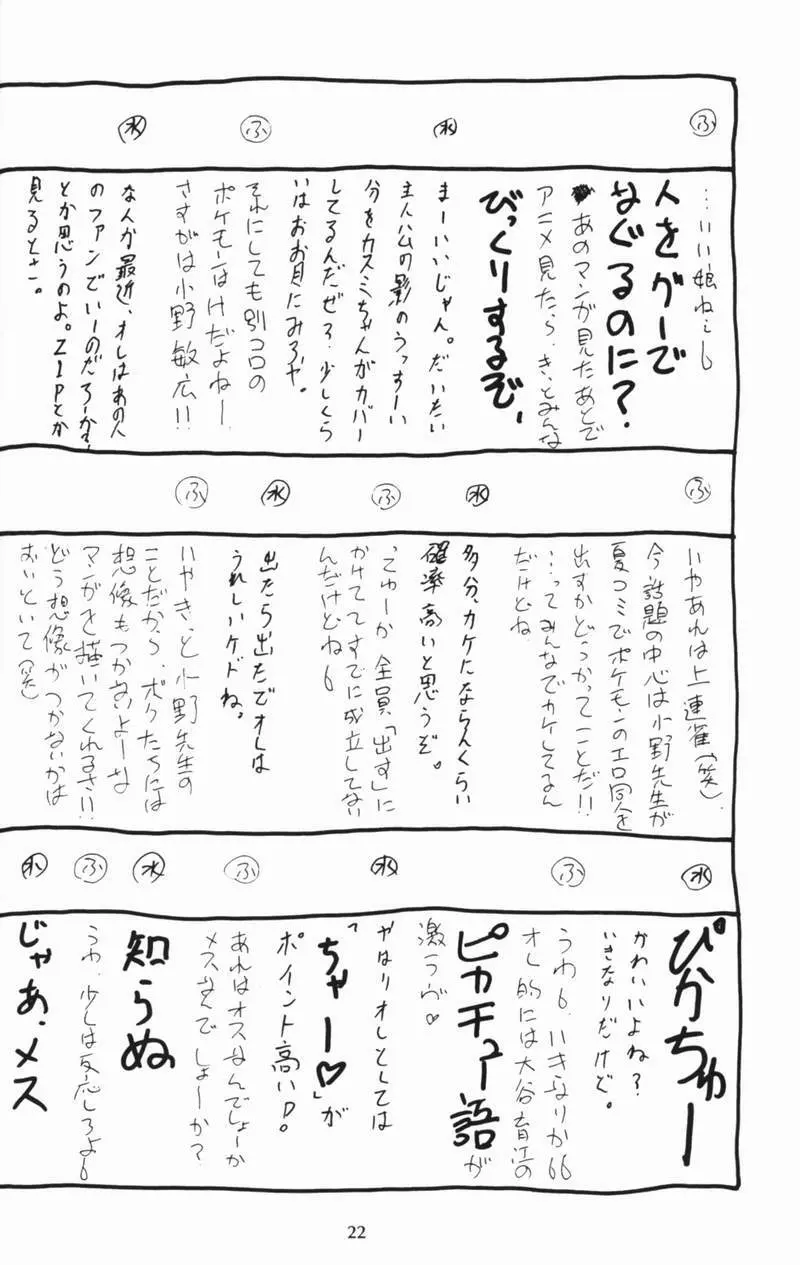 ふ
…いい娘ねぇ6
人をグーで
なぐるのに?
あのマンガ見たあとで
アニメ見たら、きっとみんな
びっくりするぞ。
水
まーいいじゃん。だいたい
主人公の影のうっすーい
分をカスミちゃんがカバー
してるんだぜろ、少しくら
いはおお目にみろや。
ふ
それにしても別コロの
ポケモンはけだよねー
さすがは小野敏広!!
水
な人か最近、オレはあの人
のファンでいーのだろーか?
とか思うのよ。ZIPとか
見るとさー。
ふ
いやあれは上連雀(笑)
今話題の中心は小野先生が
夏コミでポケモンのエロ同人を
出すかどうかってことだ!!
…ってみんなでカケしてるん
だけどね
水
多分、カケにならんくらい
確率高いと思うぞ。
ふ
ってゆーか全員「出す」に
かけててすでに成立してない
んだけどね6
水
出たら出たでオレは
うれしいケドね。
ふ
いやきっと小野先生の
ことだから、ボクたちには
想像もつかないよーな
マンガを描いてくれるさ!!
どう想像がつかないかは
おいといて(笑)
水
ぴかちゅー
かわいいよね?
いきなりだけど。
ふ
うわ6、いきなりか66
オレ的には大谷育江の
ピカチュー語が
激ラヴ♡
水
やはりオレとしては
「ちゃー♡」が
ポイント高いD。
ふ
あれはオスなんでしょーか
メスなんでしょーか?
水
知らぬ
ふ
うわ、少しは反応しろよ6
水
じゃあ、メス
22